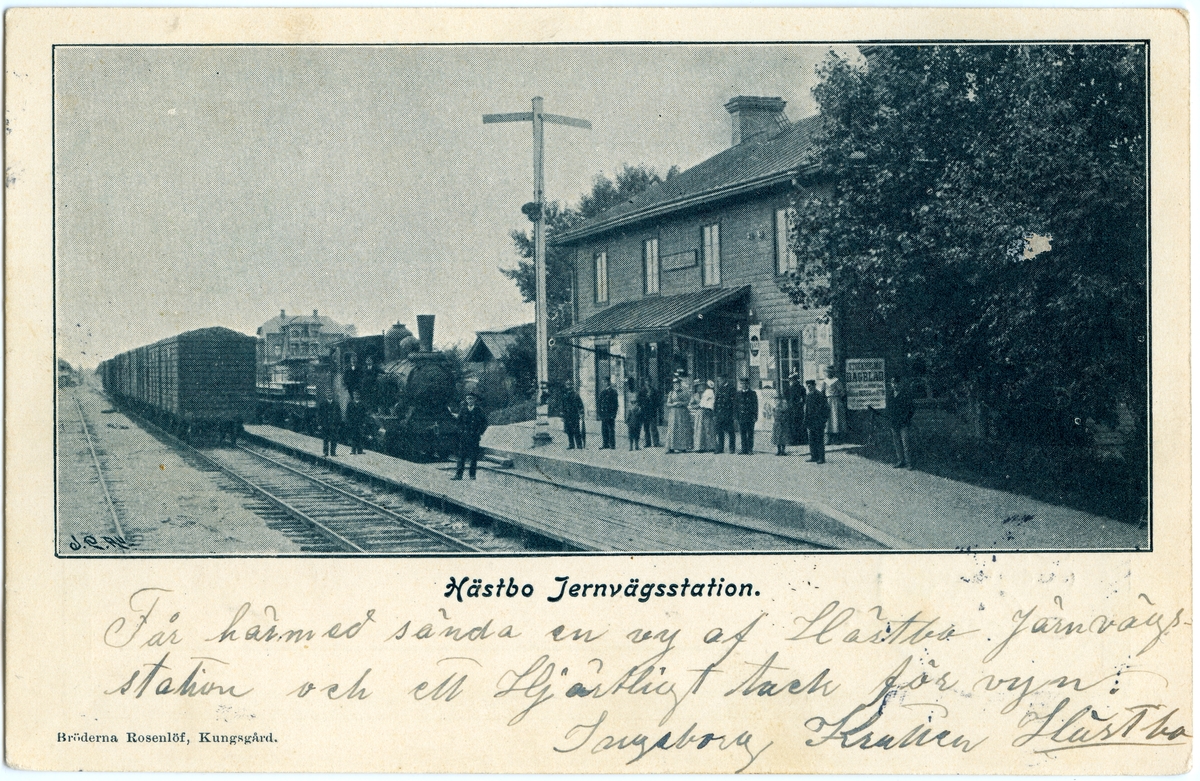 DAGBLAD
Hästbo Jernvägsstation.
Får härmed sända en vy af Hästbo Järnvägs-
station och ett Hjärtligt tack för vyn.
Bröderna Rosenlöf, Kungsgård.
Ingeborg Hästbo